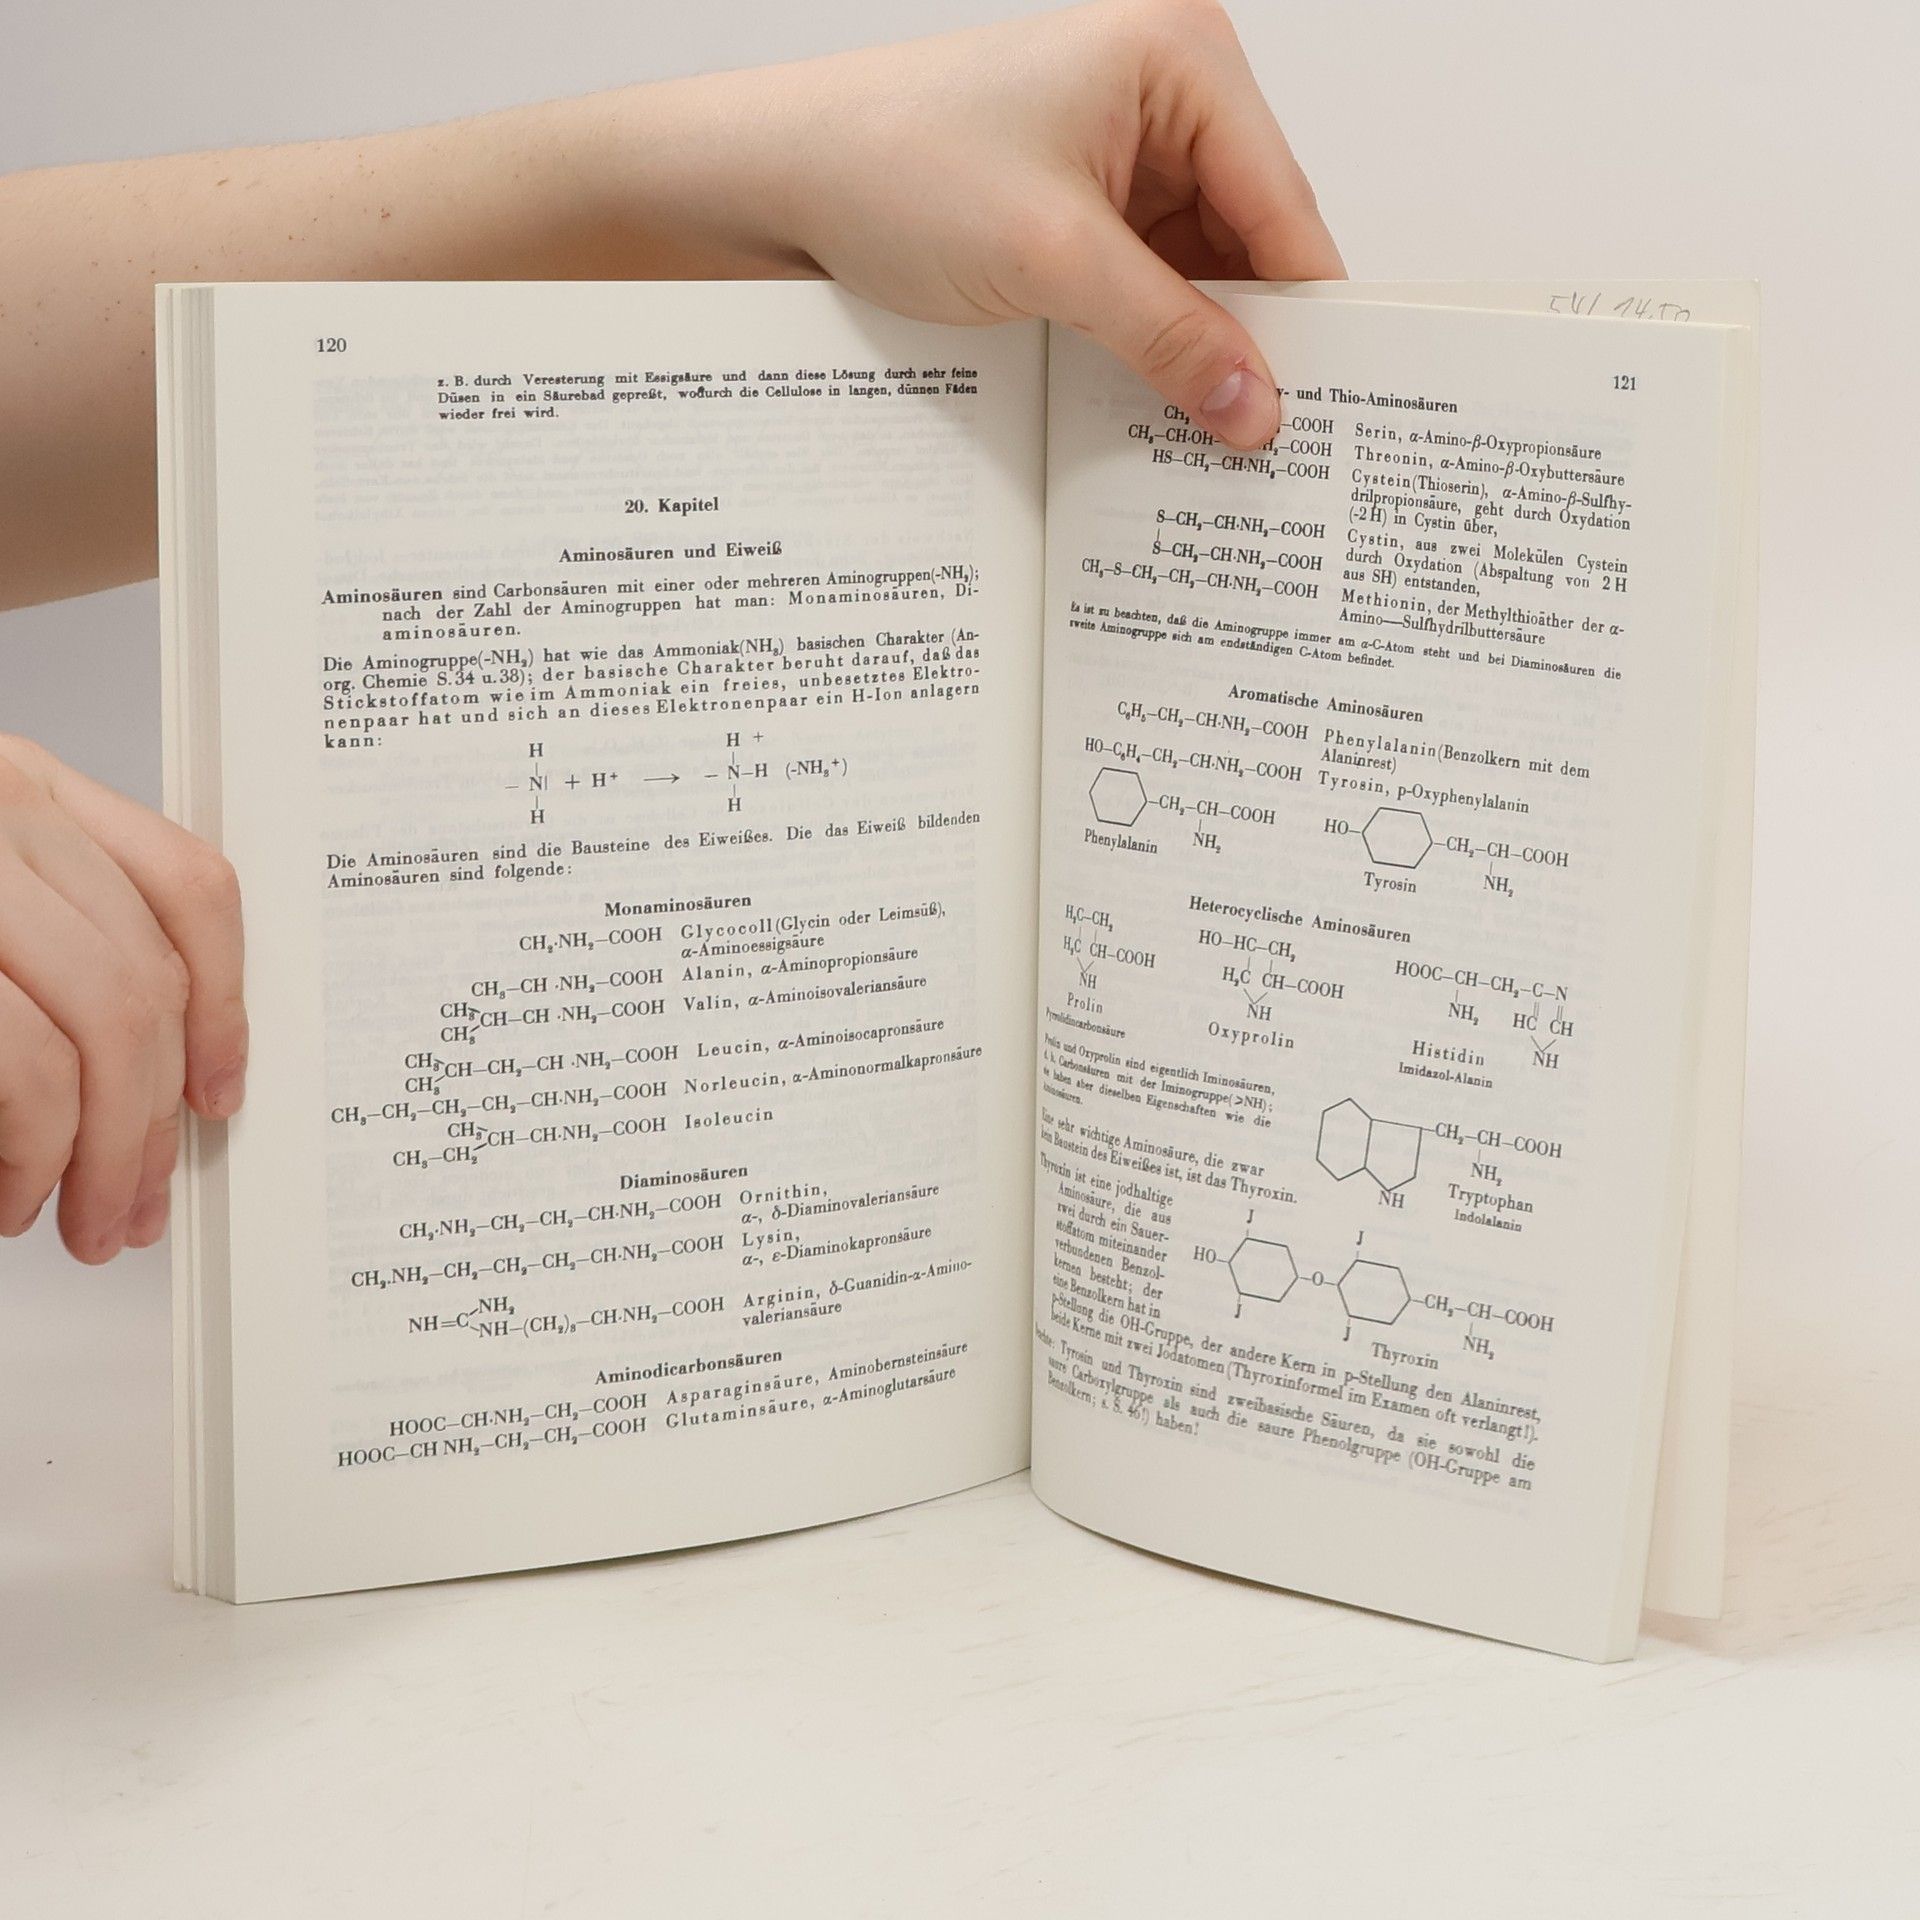 120
z. B. durch Veresterung mit Essigsäure und dann diese Lösung durch sehr feine
Düsen in ein Säurebad gepreßt, wodurch die Cellulose in langen, dünnen Fäden
wieder frei wird.
20. Kapitel
Aminosäuren und Eiweiß
Aminosäuren sind Carbonsäuren mit einer oder mehreren Aminogruppen(-NH₂);
nach der Zahl der Aminogruppen hat man: Monaminosäuren, Di-
aminosäuren.
Die Aminogruppe(-NH₂) hat wie das Ammoniak(NH₃) basischen Charakter (An-
org. Chemie S.34 u.38); der basische Charakter beruht darauf, daß das
Stickstoffatom wie im Ammoniak ein freies, unbesetztes Elektro-
nenpaar hat und sich an dieses Elektronenpaar ein H-Ion anlagern
kann:
H H +
– N| + H⁺ ⟶ – N–H (-NH₃⁺)
H H
Die Aminosäuren sind die Bausteine des Eiweißes. Die das Eiweiß bildenden
Aminosäuren sind folgende:
Monaminosäuren
CH₂·NH₂–COOH Glycocoll(Glycin oder Leimsüß),
α-Aminoessigsäure
CH₃–CH ·NH₂–COOH Alanin, α-Aminopropionsäure
CH₃
CH–CH ·NH₂–COOH Valin, α-Aminoisovaleriansäure
CH₃
CH₃
CH–CH₂–CH ·NH₂–COOH Leucin, α-Aminoisocapronsäure
CH₃
CH₃–CH₂–CH₂–CH₂–CH·NH₂–COOH Norleucin, α-Aminonormalkapronsäure
CH₃
CH–CH·NH₂–COOH Isoleucin
CH₃–CH₂
Diaminosäuren
CH₂·NH₂–CH₂–CH₂–CH·NH₂–COOH Ornithin,
α-, δ-Diaminovaleriansäure
CH₂·NH₂–CH₂–CH₂–CH₂–CH·NH₂–COOH Lysin,
α-, ε-Diaminokapronsäure
NH₂
NH=C
NH–(CH₂)₃–CH·NH₂–COOH Arginin, δ-Guanidin-α-Amino-
valeriansäure
Aminodicarbonsäuren
HOOC–CH·NH₂–CH₂–COOH Asparaginsäure, Aminobernsteinsäure
HOOC–CH NH₂–CH₂–CH₂–COOH Glutaminsäure, α-Aminoglutarsäure
121
y- und Thio-Aminosäuren
CH₂ –COOH Serin, α-Amino-β-Oxypropionsäure
CH₃–CH·OH– H₂–COOH Threonin, α-Amino-β-Oxybuttersäure
HS–CH₂–CH·NH₂–COOH Cystein(Thioserin), α-Amino-β-Sulfhy-
drilpropionsäure, geht durch Oxydation
(-2H) in Cystin über,
S–CH₂–CH·NH₂–COOH Cystin, aus zwei Molekülen Cystein
S–CH₂–CH·NH₂–COOH durch Oxydation (Abspaltung von 2 H
aus SH) entstanden,
CH₃–S–CH₂–CH₂–CH·NH₂–COOH Methionin, der Methylthioäther der α-
Amino—Sulfhydrilbuttersäure
Es ist zu beachten, daß die Aminogruppe immer am α-C-Atom steht und bei Diaminosäuren die
zweite Aminogruppe sich am endständigen C-Atom befindet.
Aromatische Aminosäuren
C₆H₅–CH₂–CH·NH₂–COOH Phenylalanin(Benzolkern mit dem
Alaninrest)
HO–C₆H₄–CH₂–CH·NH₂–COOH Tyrosin, p-Oxyphenylalanin
–CH₂–CH–COOH
NH₂
Phenylalanin
HO– –CH₂–CH–COOH
NH₂
Tyrosin
Heterocyclische Aminosäuren
H₂C–CH₂
H₂C CH–COOH
NH
Prolin
Pyrrolidincarbonsäure
HO–HC–CH₂
H₂C CH–COOH
NH
Oxyprolin
HOOC–CH–CH₂–C–N
NH₂ HC CH
NH
Histidin
Imidazol-Alanin
Prolin und Oxyprolin sind eigentlich Iminosäuren,
d. h. Carbonsäuren mit der Iminogruppe(>NH);
sie haben aber dieselben Eigenschaften wie die
Aminosäuren.
–CH₂–CH–COOH
NH₂
NH
Tryptophan
Indolalanin
Eine sehr wichtige Aminosäure, die zwar
kein Baustein des Eiweißes ist, ist das Thyroxin.
Thyroxin ist eine jodhaltige
Aminosäure, die aus
zwei durch ein Sauer-
stoffatom miteinander
verbundenen Benzol-
kernen besteht; der
eine Benzolkern hat in
p-Stellung die OH-Gruppe, der andere Kern in p-Stellung den Alaninrest,
beide Kerne mit zwei Jodatomen(Thyroxinformel im Examen oft verlangt!).
J J
HO– –O– –CH₂–CH–COOH
J J NH₂
Thyroxin
Tyrosin und Thyroxin sind zweibasische Säuren, da sie sowohl die
saure Carboxylgruppe als auch die saure Phenolgruppe (OH-Gruppe am
Benzolkern; s. S. 46!) haben!